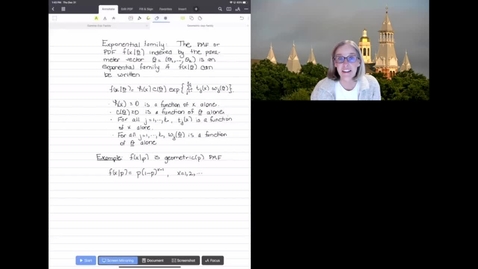 Exponential family: The PMF or
PDF f(x|θ) indexed by the para-
meter vector θ = (θ₁, ..., θₖ) is an
exponential family if f(x|θ) can
be written
f(x|θ) = h(x) c(θ) exp{ Σ tⱼ(x) wⱼ(θ) }
h(x) ≥ 0 is a function of x alone.
· c(θ) ≥ 0 is a function of θ alone.
· For all j=1,...,k, tⱼ(x) is a function
of x alone.
· For all j=1,...,k, wⱼ(θ) is a function
of θ alone.
Example: f(x|p) is geometric(p) PMF
f(x|p) = p(1-p)ˣ⁻¹, x=1,2,...
Start
Screen Mirroring
Document
Screenshot
Focus